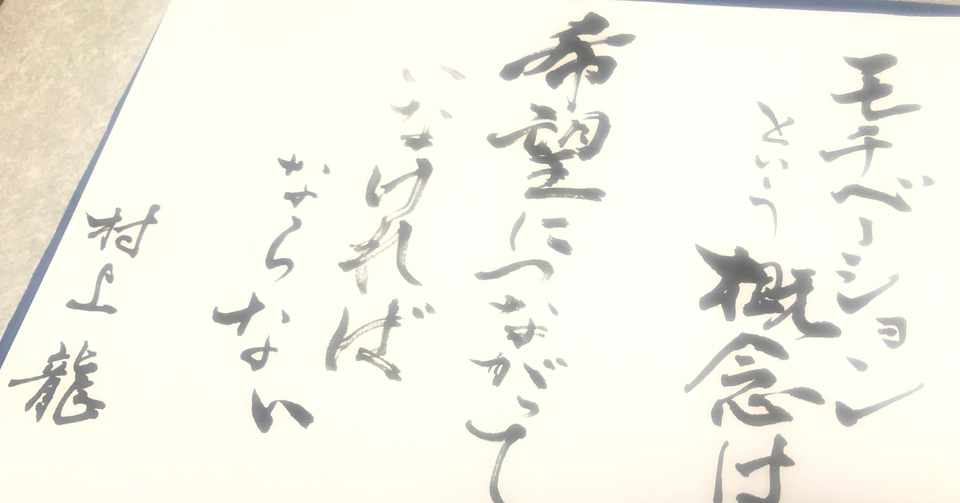 モチベーション
という概念は
希望につながって
いなければ
ならない
村上龍